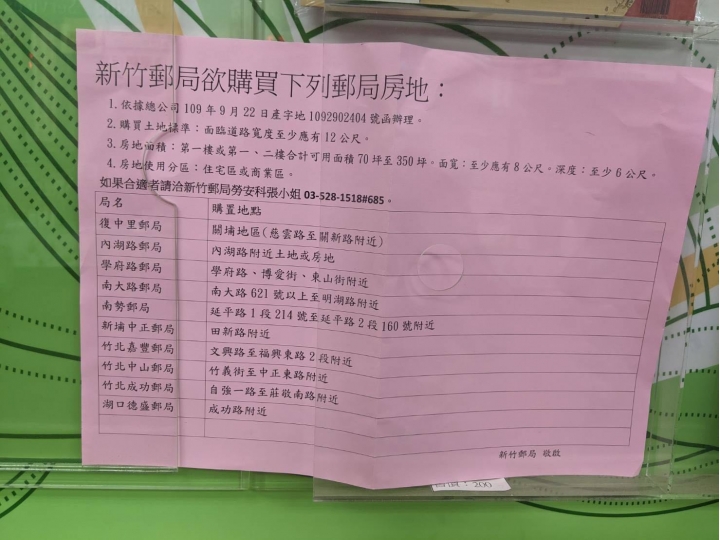 新竹郵局欲購買下列郵局房地：
1.依據總公司 109 年 9 月 22 日產字地 1092902404 號函辦理。
2.購買土地標準：面臨道路寬度至少應有 12 公尺。
3.房地面積：第一樓或第一、二樓合計可用面積 70 坪至 350 坪。面寬：至少應有 8 公尺。深度：至少 6 公尺。
4.房地使用分區：住宅區或商業區。
如果合適者請洽新竹郵局勞安科張小姐 03-528-1518#685。
局名 購置地點
復中里郵局 關埔地區(慈雲路至關新路附近)
內湖路郵局 內湖路附近土地或房地
學府路郵局 學府路、博愛街、東山街附近
南大路郵局 南大路 621 號以上至明湖路附近
南勢郵局 延平路 1 段 214 號至延平路 2 段 160 號附近
新埔中正郵局 田新路附近
竹北嘉豐郵局 文興路至福興東路 2 段附近
竹北中山郵局 竹義街至中正東路附近
竹北成功郵局 自強一路至莊敬南路附近
湖口德盛郵局 成功路附近
新竹郵局 敬啟
200